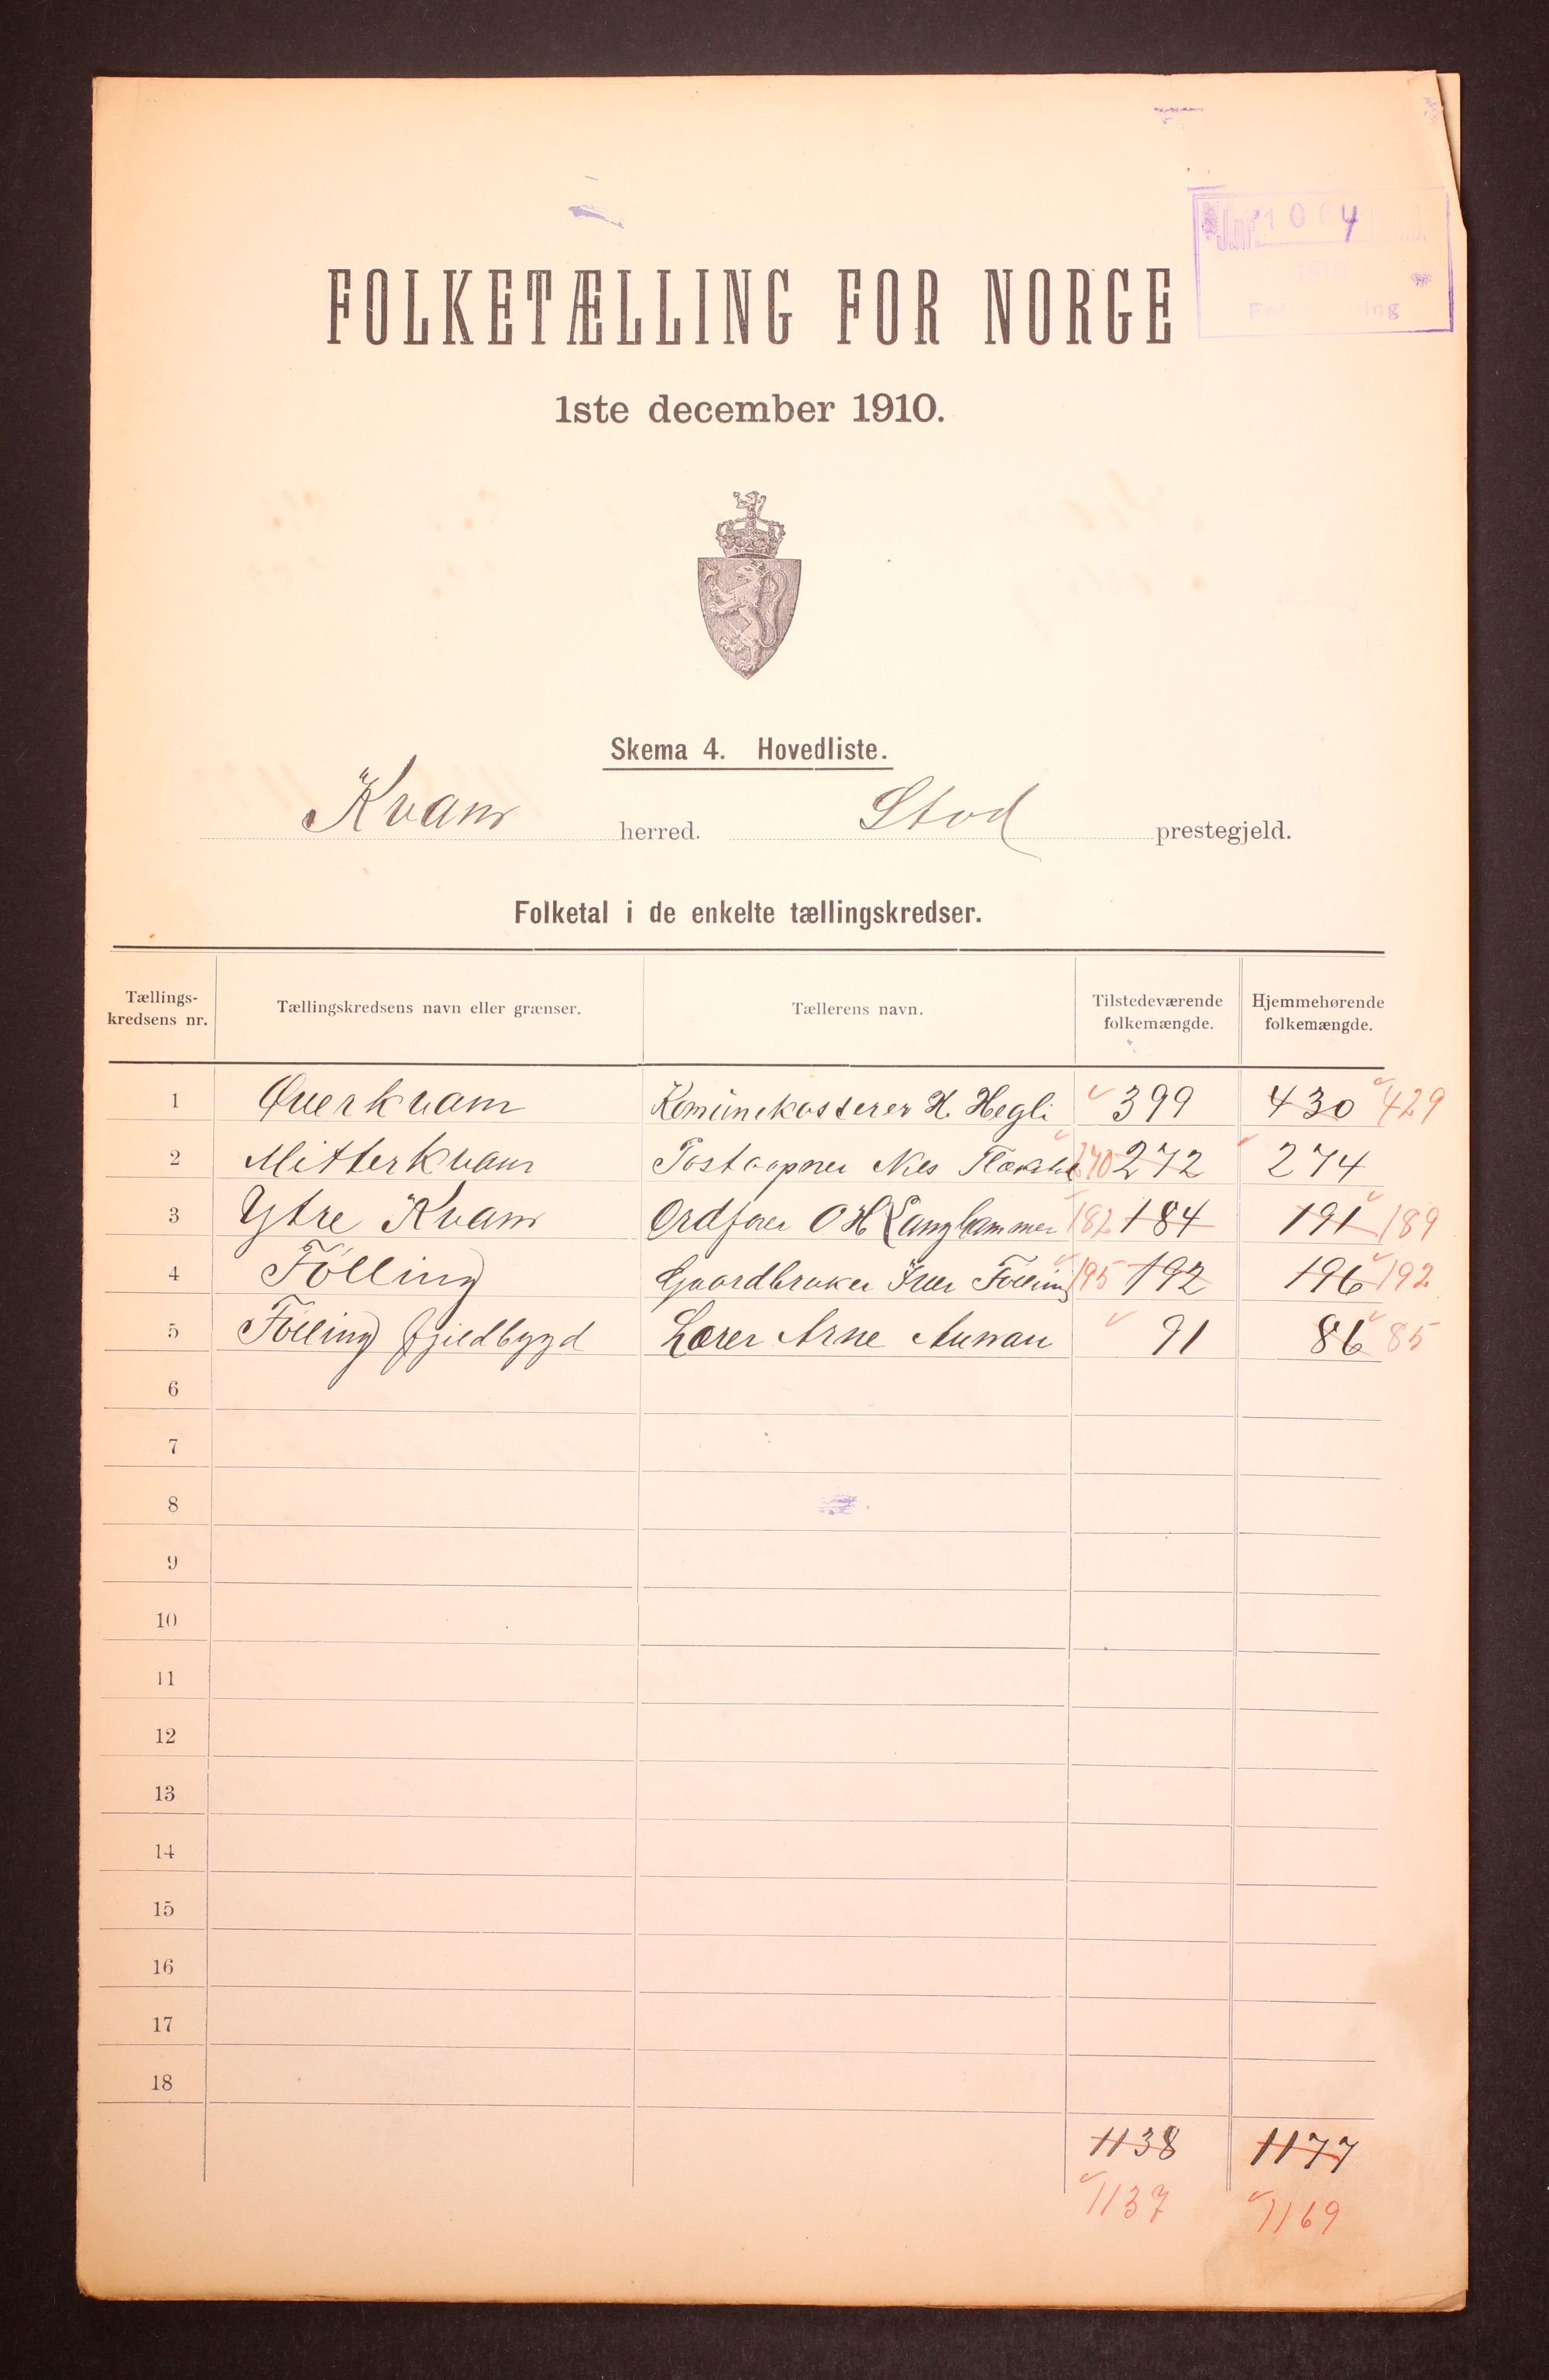 J.nr. 1064
1910
Folketælling
FOLKETÆLLING FOR NORGE
1ste december 1910.
Skema 4. Hovedliste.
Kvam herred. Stod prestegjeld.
Folketal i de enkelte tællingskredser.
Tællings-kredsens nr. Tællingskredsens navn eller grænser. Tællerens navn. Tilstedeværende folkemængde. Hjemmehørende folkemængde.
1 Øverkvam Komunekasserer H. Hegli 399 430 429
2 Mitterkvam Postaapner Nils 270 272 274
3 Ytre Kvam Ordfører O H Langhammer 182 184 191 189
4 Følling Gaardbruker Iver Følling 195 192 196 192
5 Følling fjeldbygd Lærer Arne Aunan 91 86 85
6
7
8
9
10
11
12
13
14
15
16
17
18
1138 1177
1137 1169